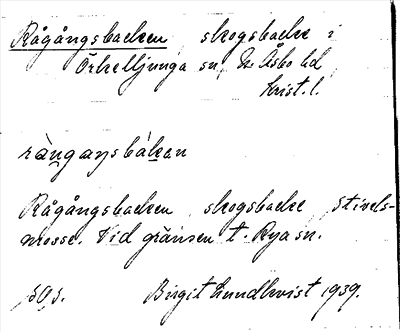 Rågångsbacken, skogsbacke i
Örkelljunga sn, N. Åsbo hd
Krist. l.
ràŋgaŋsbàkan
Rågångsbacken, skogsbacke, Stivels-
mosse. Vid gränsen t. Rya sn.
Birgit Lundkvist 1939.